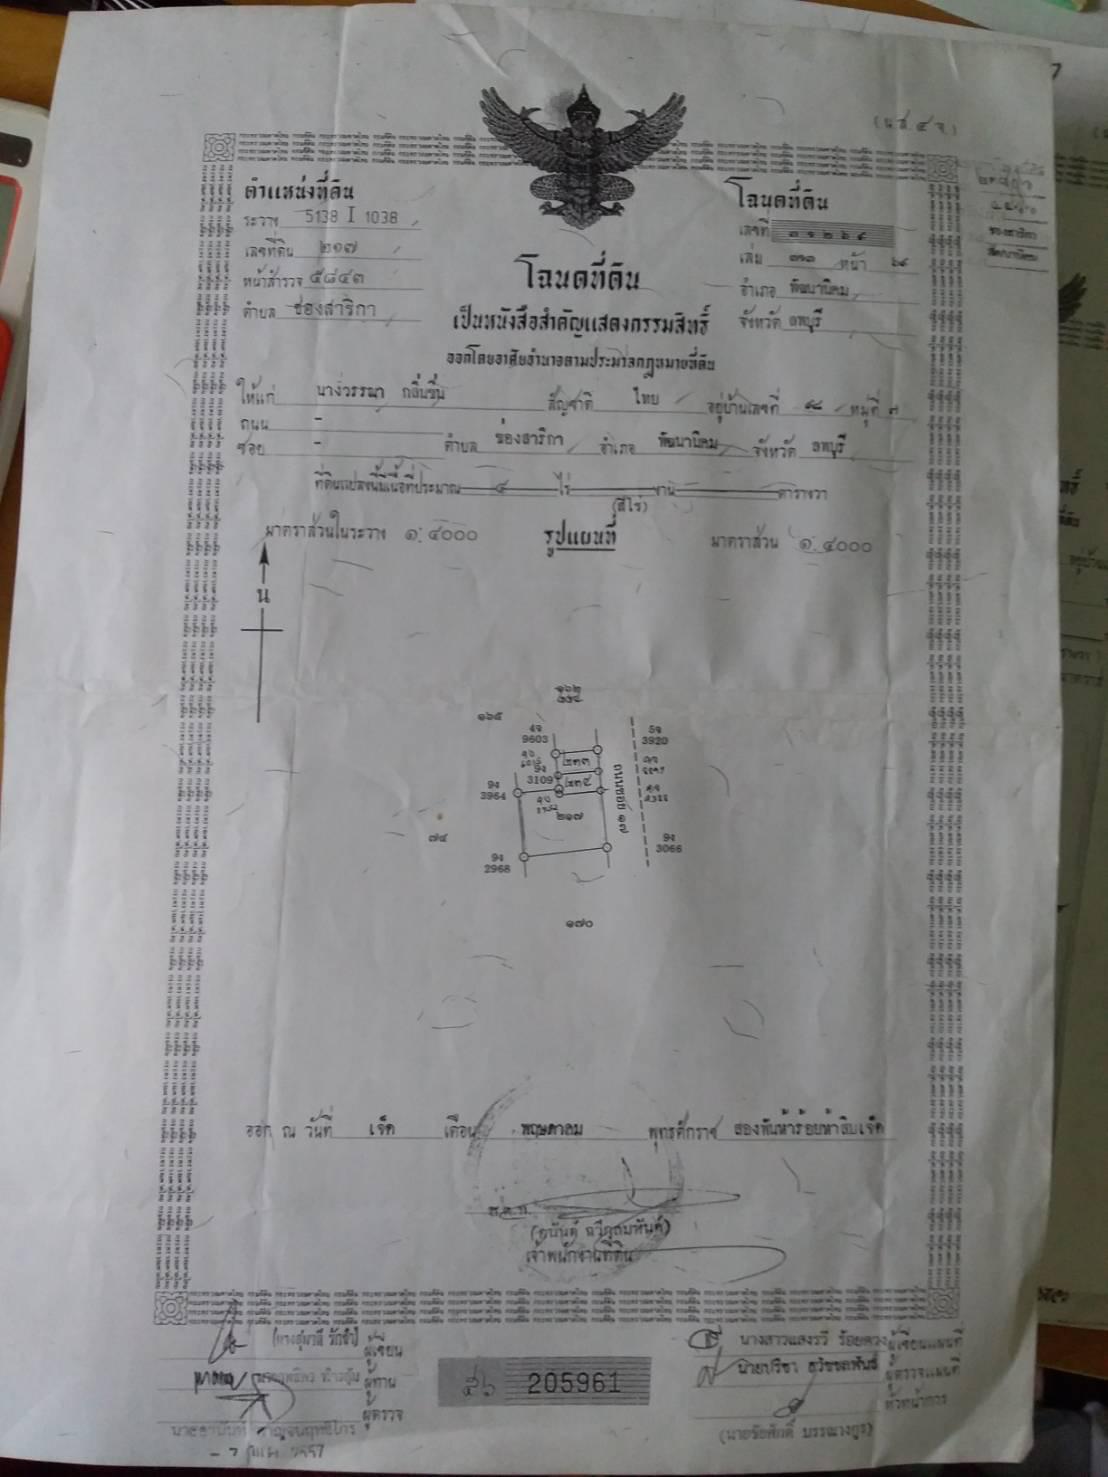 (น.ส. ๔ จ.)
ตำแหน่งที่ดิน
ระวาง 5138 I 1038
เลขที่ดิน ๒๑๗
หน้าสำรวจ ๕๘๔๓
ตำบล ช่องสาริกา
โฉนดที่ดิน
เลขที่ ๓๑๒๖๔
เล่ม ๓๑๓ หน้า ๖๔
อำเภอ พัฒนานิคม
จังหวัด ลพบุรี
โฉนดที่ดิน
เป็นหนังสือสำคัญแสดงกรรมสิทธิ์
ออกโดยอาศัยอำนาจตามประมวลกฎหมายที่ดิน
ให้แก่ นางวรรณา กลิ่นชื่น สัญชาติ ไทย อยู่บ้านเลขที่ หมู่ที่ ๗
ถนน -
ซอย - ตำบล ช่องสาริกา อำเภอ พัฒนานิคม จังหวัด ลพบุรี
ที่ดินแปลงนี้มีเนื้อที่ประมาณ ๔ ไร่ งาน ตารางวา
(สี่ไร่)
มาตราส่วนในระวาง ๑:๔๐๐๐ รูปแผนที่ มาตราส่วน ๑:๔๐๐๐
น
๑๖๒
๑๖๕
4จ 9603
5จ 3920
๒๓๓
9ง 3109
๒๓๔
9ง 3964
ถนนซอย ๑๗
๒๑๗
๗๔
9ง 3066
9ง 2968
๑๗๐
ออก ณ วันที่ เจ็ด เดือน พฤษภาคม พุทธศักราช สองพันห้าร้อยห้าสิบเจ็ด
เจ้าพนักงานที่ดิน
ผู้เขียน
ผู้ทาน
ผู้ตรวจ
2557
205961
นางสาวแสงรวี ร้อยดวง ผู้เขียนแผนที่
นายปรีชา ธวัชชพันธ์ ผู้ตรวจแผนที่
หัวหน้าการ
(นายชัยศักดิ์ บรรณางกูร)